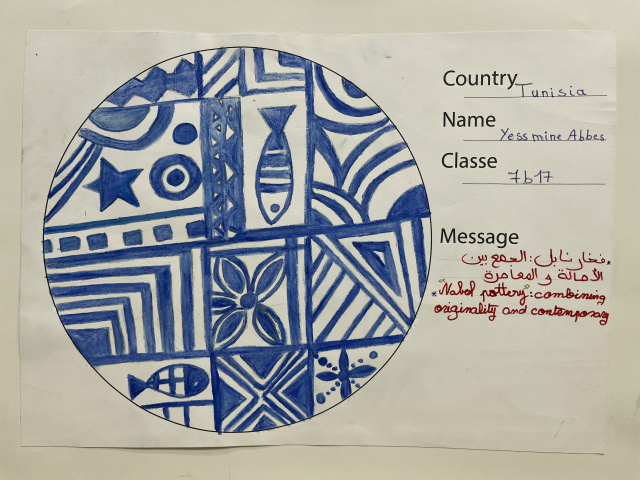 Country
Tunisia
Name
Yessmine Abbes
Classe
7b17
Message
فخار نابل: الجمع بين
الأصالة و المعاصرة
"Nabel pottery": combining
originality and contemporary